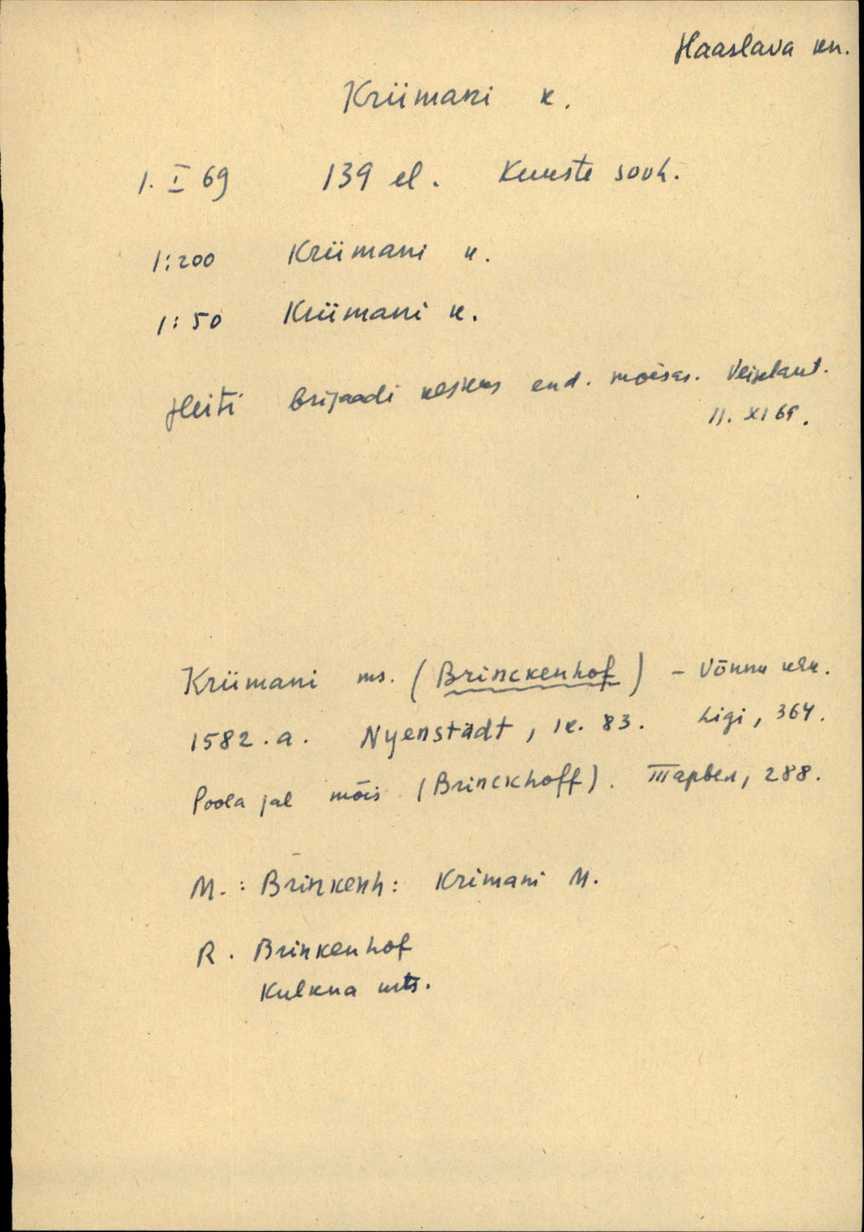 Haaslava kn.
Kriimani k.
1. I 69 139 el. Kuuste sovh.
1:200 Kriimani k.
1:50 Kriimani k.
Heiti brigaadi keskus end. mõisas.
II. XI 69.
Kriimani ms. (Brinckenhof) – Võnnu khk.
1582. a. Nyenstädt, lk. 83. Ligi, 364.
Poola jal mõis (Brinckhoff). Тарвел, 288.
M.: Brinkenh: Krimani M.
R. Brinkenhof
Kulkna mts.